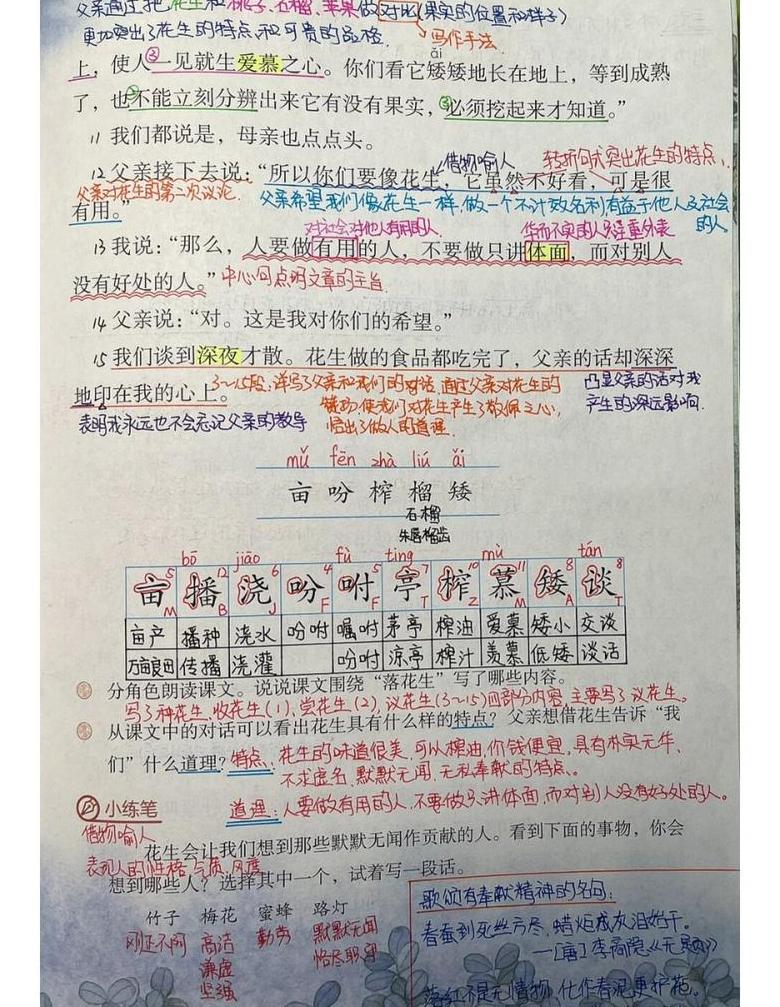 父亲通过把花生和桃子、石榴、苹果做对比(果实的位置和样子)
更加突出了花生的特点和可贵的品格.
写作手法
ǎi
上，使人②一见就生爱慕之心。你们看它矮矮地长在地上，等到成熟
了，也不能立刻分辨出来它有没有果实，③必须挖起来才知道。”
11 我们都说是，母亲也点点头。
借物喻人 转折句式突出花生的特点
12 父亲接下去说：“所以你们要像花生，它虽然不好看，可是很
父亲对花生的第二次议论.
有用。”
父亲希望我们像花生一样,做一个不计较名利有益于他人及社会的人
对社会对他人有用的人 华而不实的人只注重外表
13 我说：“那么，人要做有用的人，不要做只讲体面，而对别人
没有好处的人。” 中心句点明文章的主旨.
14 父亲说：“对。这是我对你们的希望。”
15 我们谈到深夜才散。花生做的食品都吃完了，父亲的话却深深
地印在我的心上。
3～15段:详写了父亲和我们的对话,通过父亲对花生的
使我们对花生产生了敬佩之心,
悟出了做人的道理.
凸显父亲的话对我
产生的深远影响.
表明我永远也不会忘记父亲的教导
mǔ fēn zhà liú ǎi
亩 吩 榨 榴 矮
石榴
朱唇榴齿
bō jiāo fù tíng mù tán
亩5M 播12B 浇6J 吩4F 咐5F 亭7T 榨10Z 慕11M 矮8A 谈8T
亩产 播种 浇水 吩咐 嘱咐 茅亭 榨油 爱慕 矮小 交谈
万亩良田 传播 浇灌 吩咐 凉亭 榨汁 羡慕 低矮 谈话
分角色朗读课文。说说课文围绕“落花生”写了哪些内容。
写了种花生、收花生(1),尝花生(2),议花生(3～15)四部分内容,主要写了议花生。
从课文中的对话可以看出花生具有什么样的特点？父亲想借花生告诉“我
们”什么道理？ 特点:花生的味道很美,可以榨油,价钱便宜,具有朴实无华、
不求虚名、默默无闻、无私奉献的特点。
小练笔 道理:人要做有用的人,不要做只讲体面,而对别人没有好处的人。
借物喻人
花生会让我们想到那些默默无闻作贡献的人。看到下面的事物，你会
表现人的性格、气质、风度
想到哪些人？选择其中一个，试着写一段话。
竹子 梅花 蜜蜂 路灯
刚正不阿 高洁 勤劳 默默无闻
谦虚 恪尽职守
坚强
歌颂有奉献精神的名句:
春蚕到死丝方尽,蜡炬成灰泪始干。
—[唐]李商隐《无题》
落红不是无情物,化作春泥更护花。